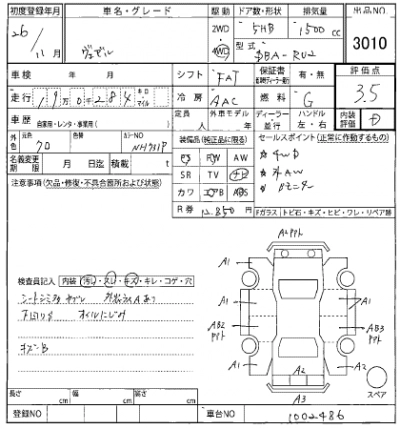 初度登録年月 車名・グレード 駆動 ドア数・形状 排気量 出品NO.
26年 11月 ヴェゼル 2WD 4WD 5HB 1500cc 3010
型式 DBA-RU2
車検 年 月 シフト FAT 保証書 有・無 評価点 3.5
走行 19万0千284 キロ マイル 冷房 AAC 燃料 G
車歴 自家用・レンタ・事業用( ) 定員 人 外車モデル 年 ディーラー 並行 ハンドル 左・右 内装評価 D
外色 元色 クロ カラーNO NH731P 装備品(純正品に限る) セールスポイント(正常に作動するもの)
PS PW AW 4WD
名義変更期限 月 日迄 積載 t SR TV ナビ AW
注意事項(欠品・修復・不具合箇所および状態) カワ エアB ABS
R券 12,850円 Fガラス トビ石・キズ・ヒビ・ワレ・リペア跡
A1
A1 A1
検査員記入 内装 汚れ・スレ・キズ・キレ・コゲ・穴
A1 A1
AB2 AB3
下回りサビ オイルにじみ
A1 A2
キズーB
A2 A2
スペア
A3
長さ cm 幅 cm 高さ cm
登録NO 車台NO 1002486